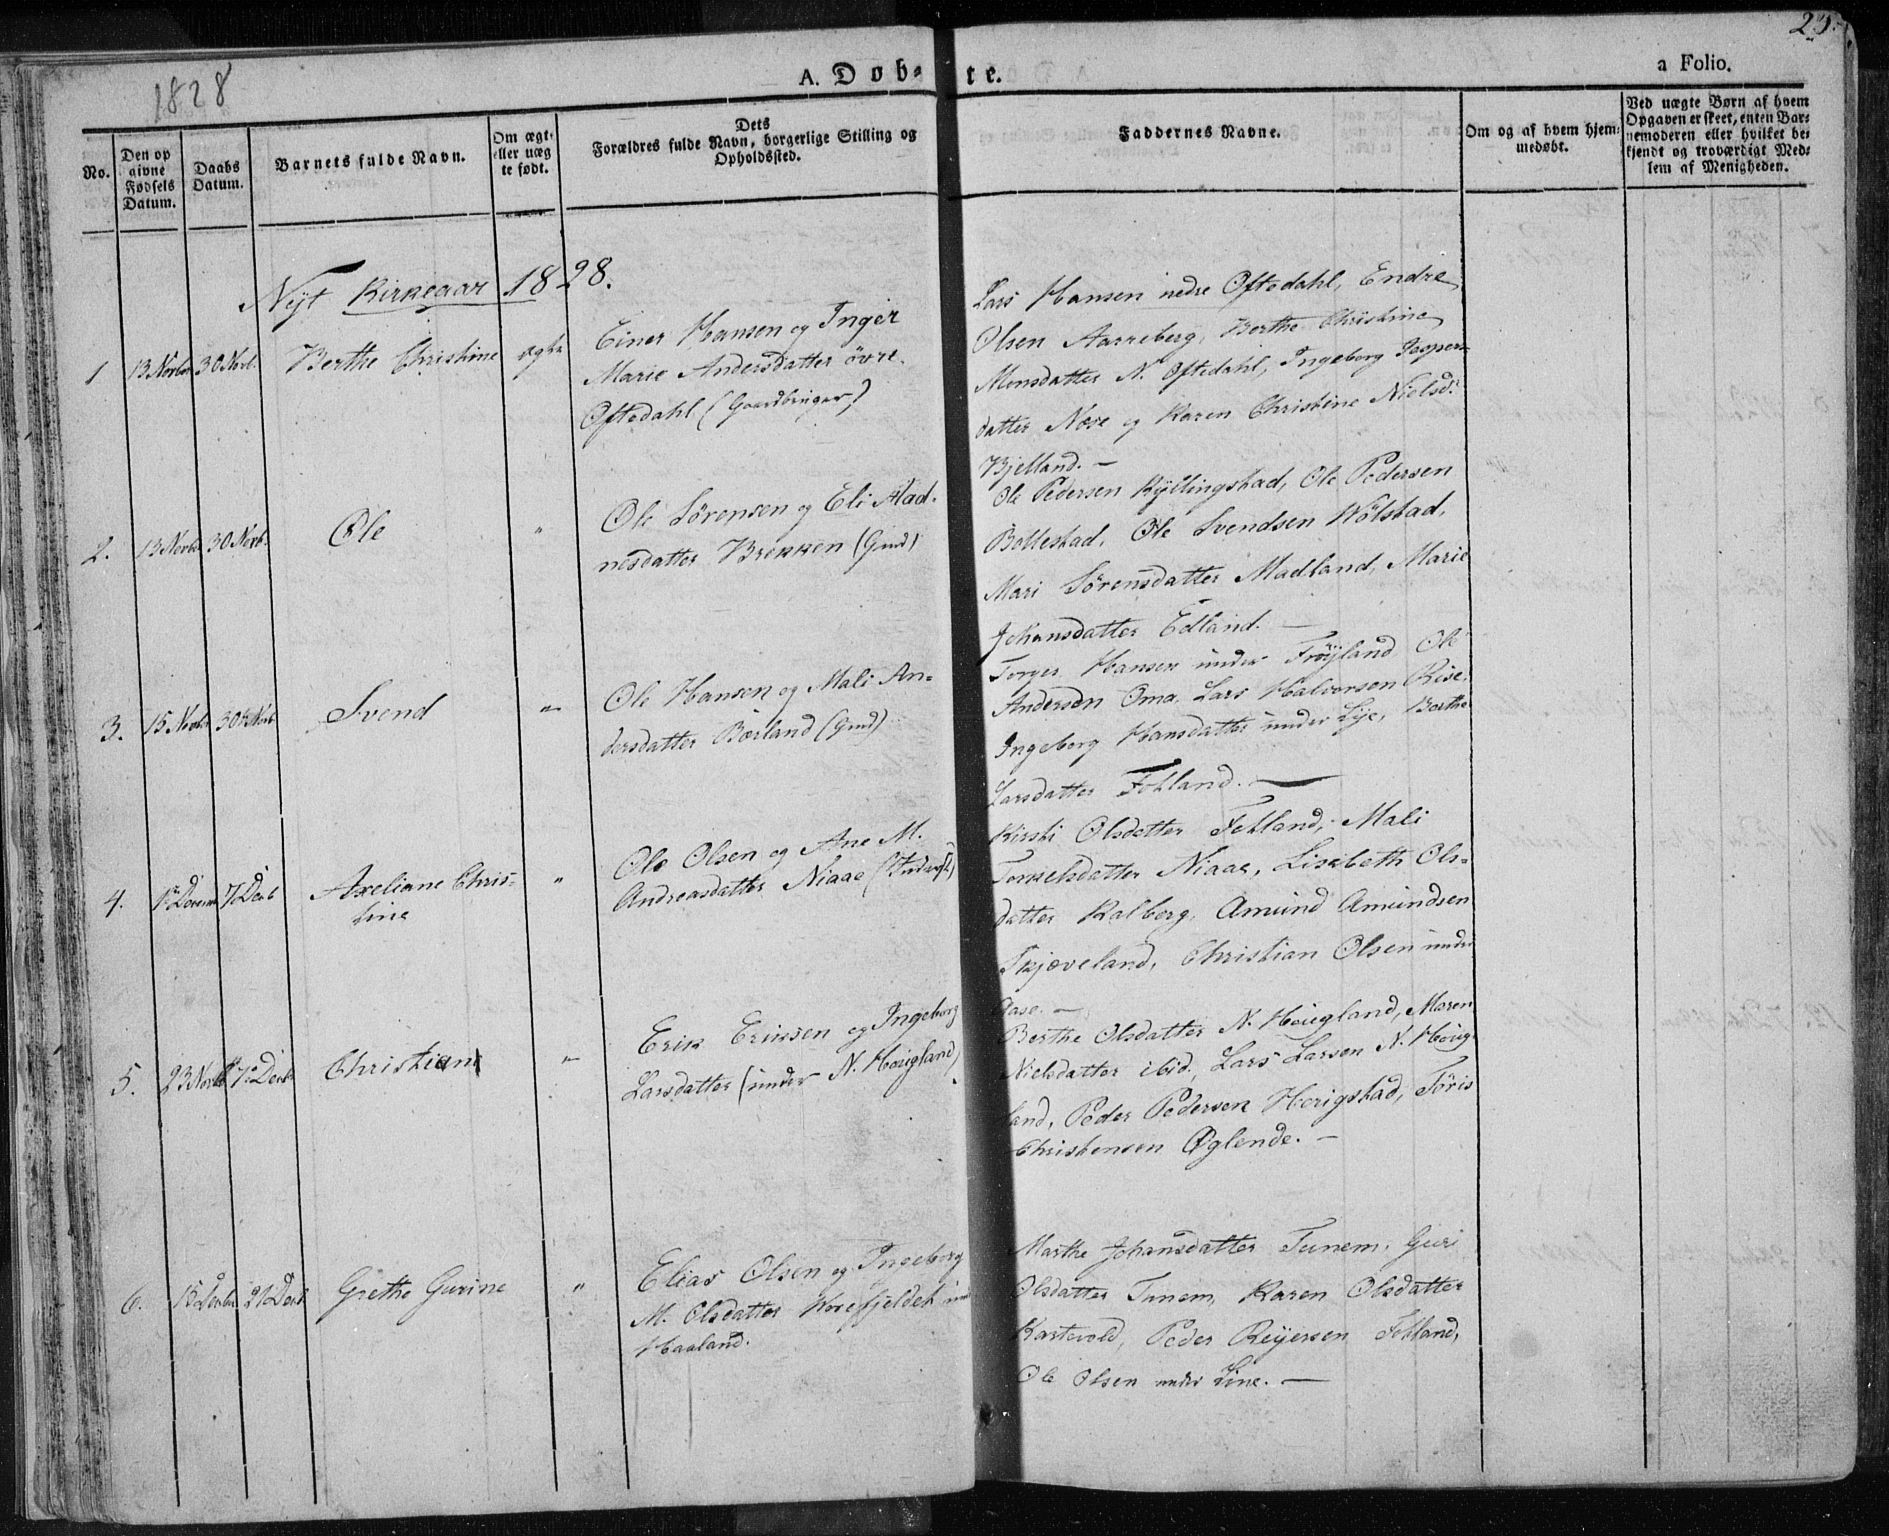 1828
A. Døb-
te.
a Folio.
25.
No.
Den op
givne
Fødsels
Datum.
Daabs
Datum.
Barnets fulde Navn.
Om ægte
eller uæg
te født.
Dets
Forældres fulde Navn, borgerlige Stilling og
Opholdssted.
Faddernes Navne.
Om og af hvem hjem-
medøbt.
Ved uægte Børn af hvem
Opgaven er skeet, enten Bar-
nemoderen eller hvilket be-
kjendt og troværdigt Med-
lem af Menigheden.
Nyt Kirkeaar 1828.
1 13 Novbr 30 Novb. Berthe Christine ægte
Einer Hansen og Inger
Marie Andersdatter øvre
Oftedahl (Gaardbruger)
Lars Hansen nedre Oftedahl, Endre
Olsen Aarreberg, Berthe Christine
Monsdatter N. Oftedahl, Ingeborg Jesper-
datter Nose og Karen Christine Nielsd.
Bjelland. —
2. 13 Novbr 30 Novb. Ole "
Ole Sørensen og Eli Aad-
nesdatter Brekken (Gmd)
Ole Pedersen Kyllingstad, Ole Pedersen
Bollestad, Ole Svendsen Wølstad,
Mari Sørensdatter Madland, Marie
Johansdatter Edland. —
3. 15 Novbr 30 Novb Svend "
Ole Hansen og Mali An-
dersdatter Børland (Gmd)
Torger Hansen under Frøyland, Ole
Andersen Oma, Lars Halvorsen Rise,
Ingeborg Hansdatter under Lye, Berthe
Larsdatter Fotland. —
4. 1 Decem 7 Decb Axeliane Chris-
tine "
Ole Olsen og Ane M.
Andreasdatter Niaae
Kirsti Olsdatter Fotland, Mali
Torkelsdatter Niaae, Lisebeth Ols-
datter Kalberg, Amund Amundsen
Skjæveland, Christian Olsen under
Aase. —
5. 23 Novb 7 Decb Christian "
Erik Eriksen og Ingeborg
Larsdatter (under N. Høugland)
Berthe Olsdatter N. Høugland, Maren
Nielsdatter ibid, Lars Larsen N. Høug-
land, Peder Pedersen Herigstad, Tøris
Christensen Øglende. —
6. 15 Decbr 21 Decb Grethe Gurine "
Elias Olsen og Ingeborg
M. Olsdatter Korefjeldet und
Haaland.
Marthe Johansdatter Tunem, Guri
Olsdatter Tunem, Karen Olsdatter
Kartevold, Peder Reyersen Fotland,
Ole Olsen under Line. —